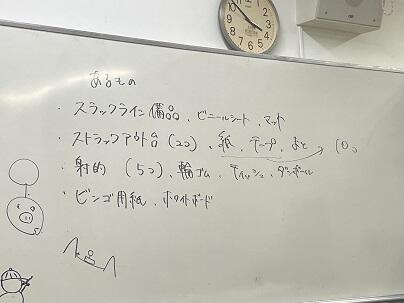 あるもの
・スラックライン備品、ビニールシート、マット
・ストラックアウト台(2つ)、紙、テープ、まと → 10こ
・射的 (5つ)、輪ゴム、ティッシュ、ダンボール
・ビンゴ用紙、ホワイトボード